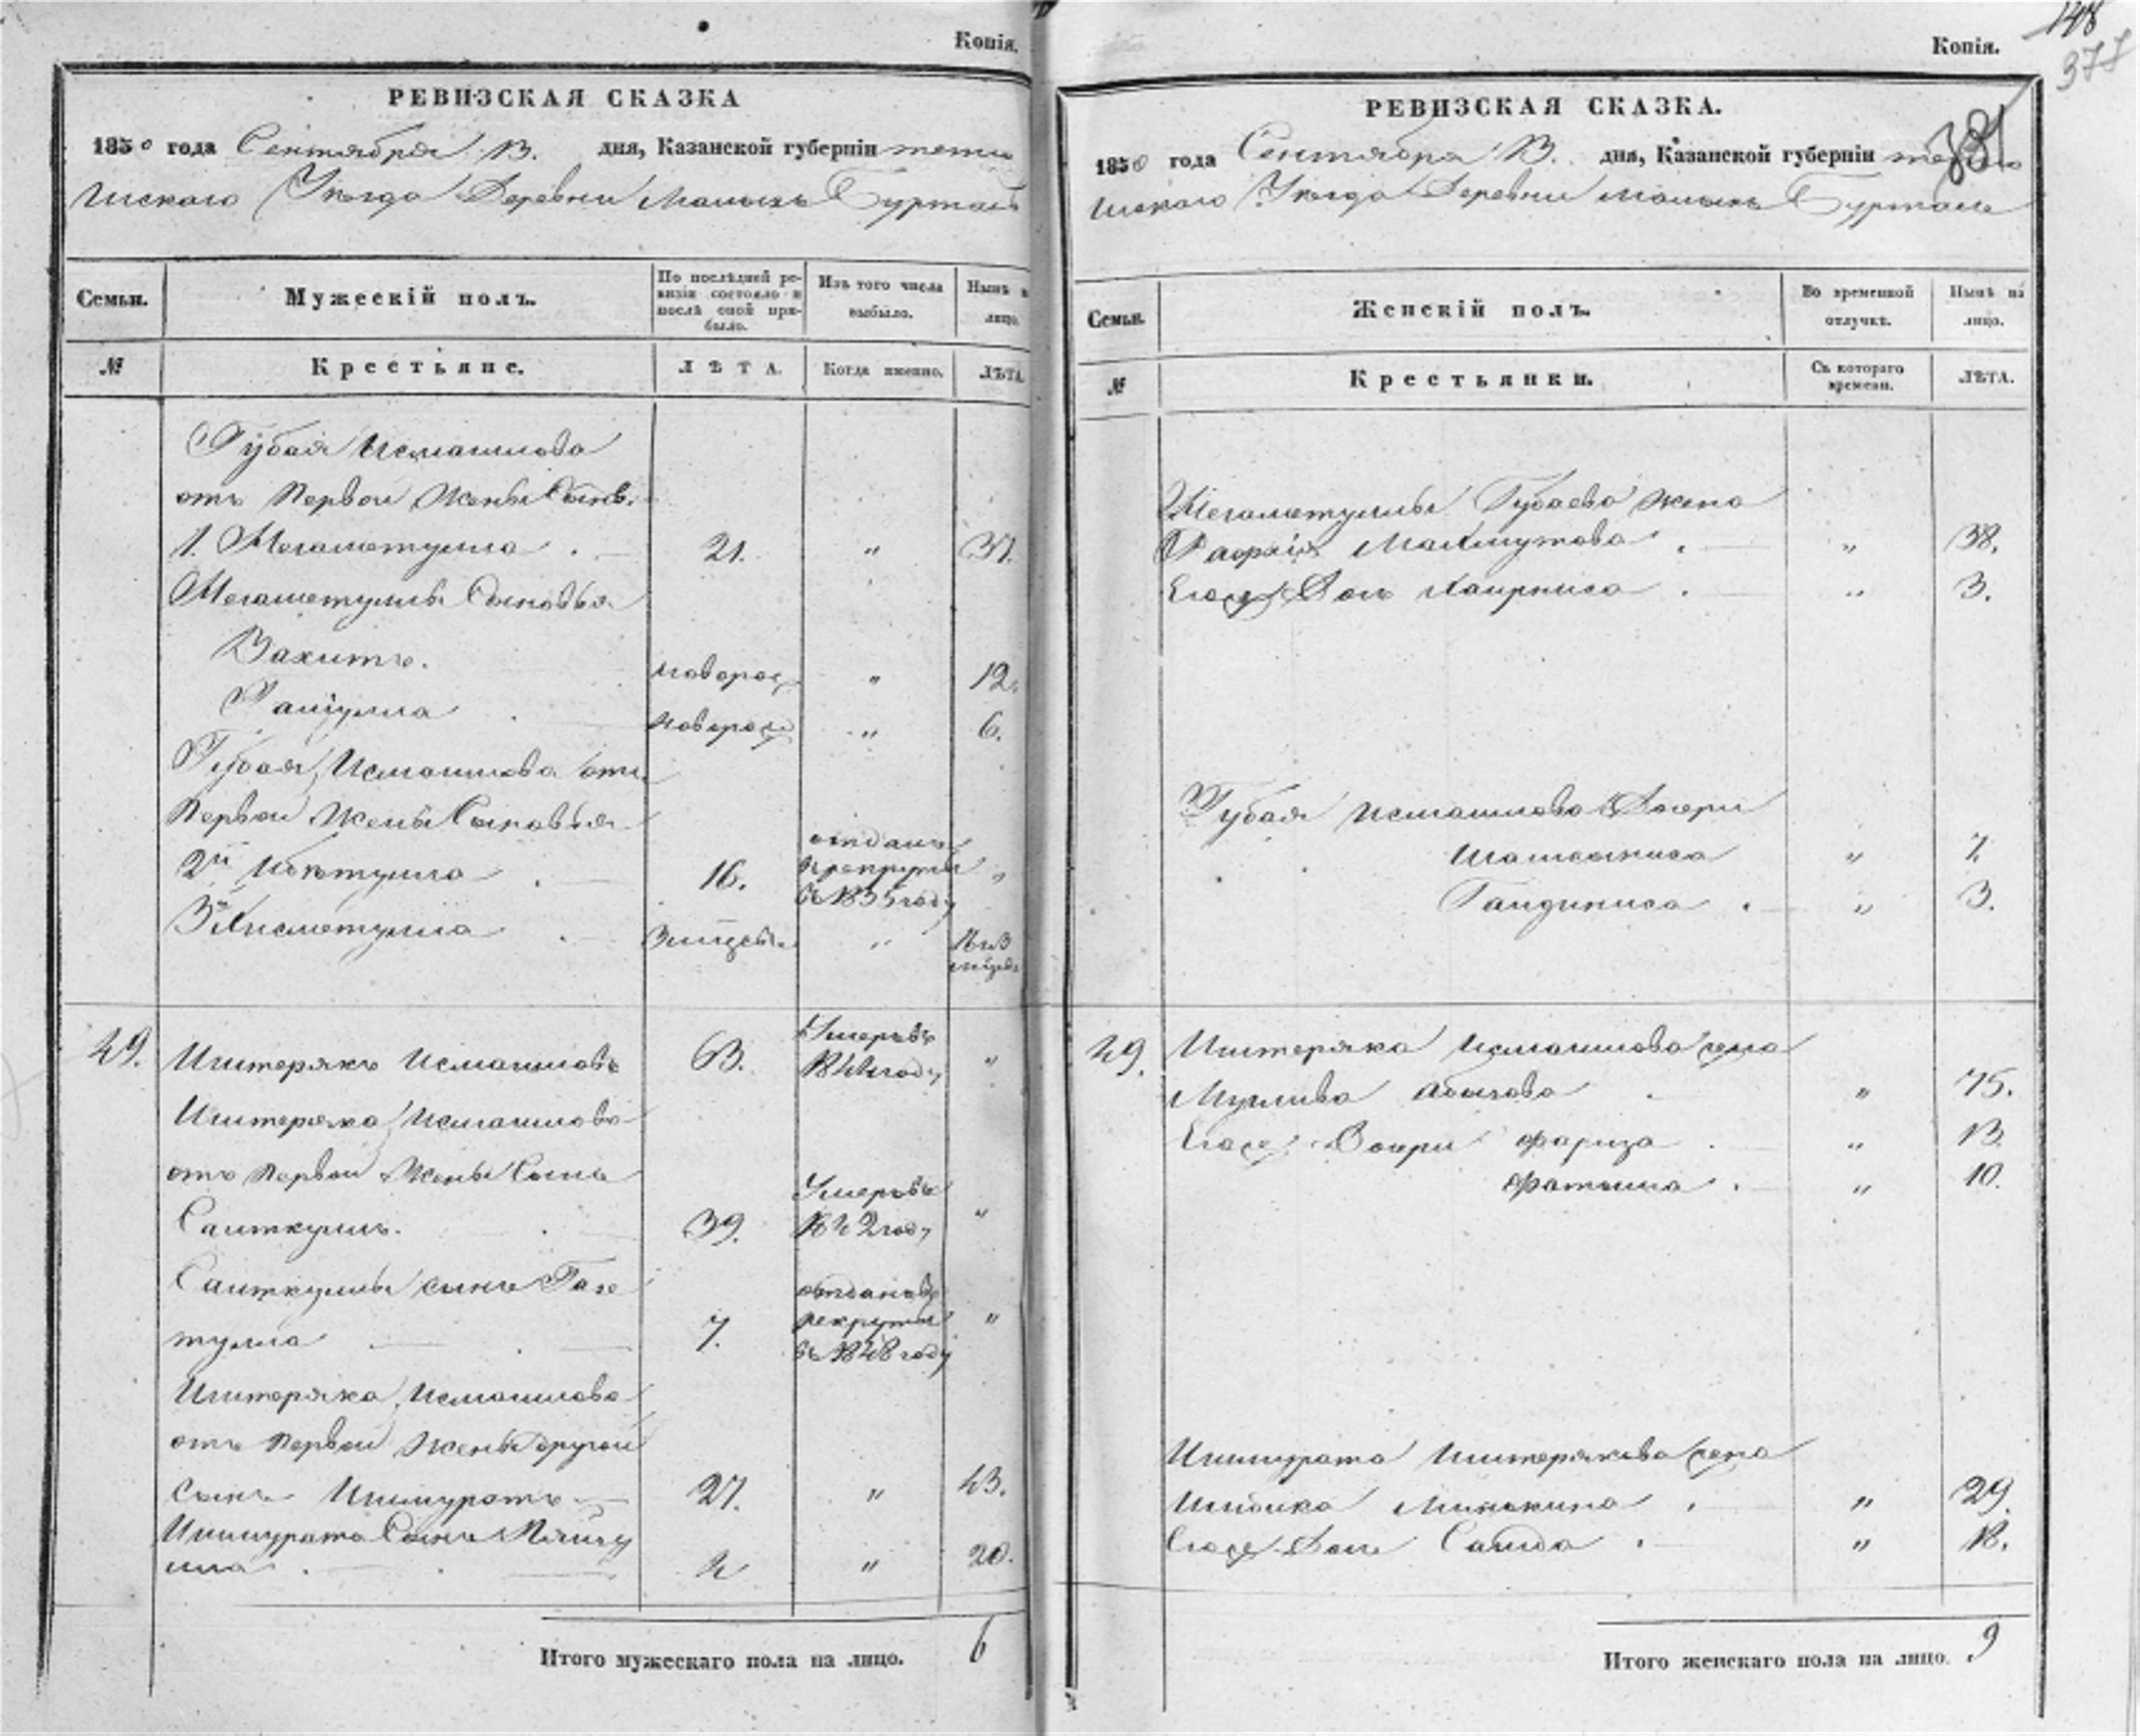 Копія.
РЕВИЗСКАЯ СКАЗКА
1850 года Сентября 13. дня, Казанской губерніи тетю
шскаго Уѣзда Деревни Малыхъ Буртасъ
Семьи.
Мужескій полъ.
По послѣдней ре-
визіи состояло и
послѣ оной при-
было.
Изъ того числа
выбыло.
Нынѣ н
лицо.
№
Крестьяне.
ЛѢТА.
Когда именно.
ЛѢТА.
Губая Исмаилова
отъ Первой Жены Сынъ.
1. Мегаметулла . 21. " 37.
Мегаметуллы Сыновья
Вахитъ. новорож " 12.
новорож " 6.
Губая Исмаилова отъ
Первой Жены Сыновья
2й 16. отданъ
в рекруты "
въ 1835 году
3й Хисметулла . "
49. Иштерякъ Исмаиловъ 63. Умеръ въ
году "
Иштеряка Исмаилова
отъ Первой Жены Сынъ
Саиткулъ. 39. Умеръ въ
1842 году "
Саиткулы сынъ
тулла 7. отданъ въ
рекруты "
въ 1848 году
Иштеряка Исмаилова
отъ Первой Жены другой
сынъ Ишмуратъ 27. " 43.
Ишмурата Сынъ
4 " 20.
Итого мужескаго пола на лицо. 6
Копія.
148
377
381
РЕВИЗСКАЯ СКАЗКА.
1850 года Сентября 13. дня, Казанской губерніи тетю
шскаго Уѣзда Деревни Малыхъ Буртасъ
Семьи.
Женскій полъ.
Во временной
отлучкѣ.
Нынѣ на
лицо.
№
Крестьянки.
Съ котораго
времени.
ЛѢТА.
Мегаметуллы Губаева жена
Махмутова . " 38.
Дочь Хаирниса . " 3.
Губая Исмаилова Дочери
" 7.
" 3.
49. Иштеряка Исмаилова жена
" 75.
Дочери фариза . " 13.
фатыма . " 10.
Ишмурата Иштерякова жена
. " 29.
Дочь Саида . " 18.
Итого женскаго пола на лицо. 9